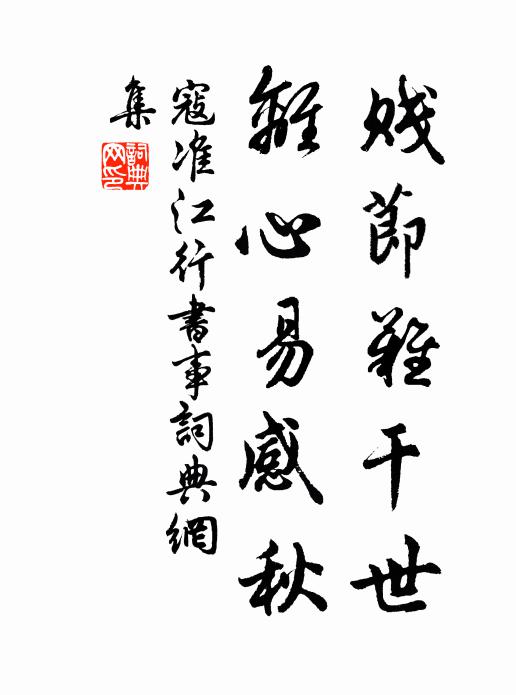 賤節難干世
離心易感秋
寇准江行書事詞典網
集
詞典
网印